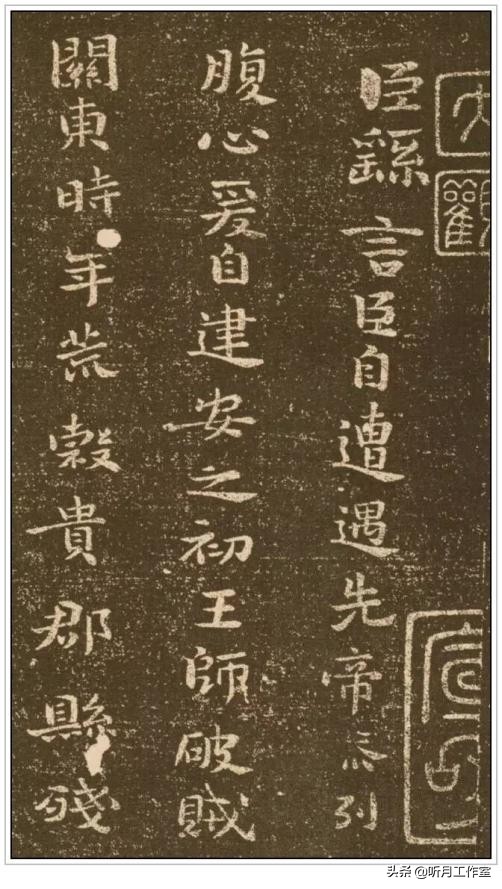 臣繇言臣自遭遇先帝忝列
腹心爰自建安之初王師破賊
關東時年荒穀貴郡縣殘
大觀
头条 @听月工作室